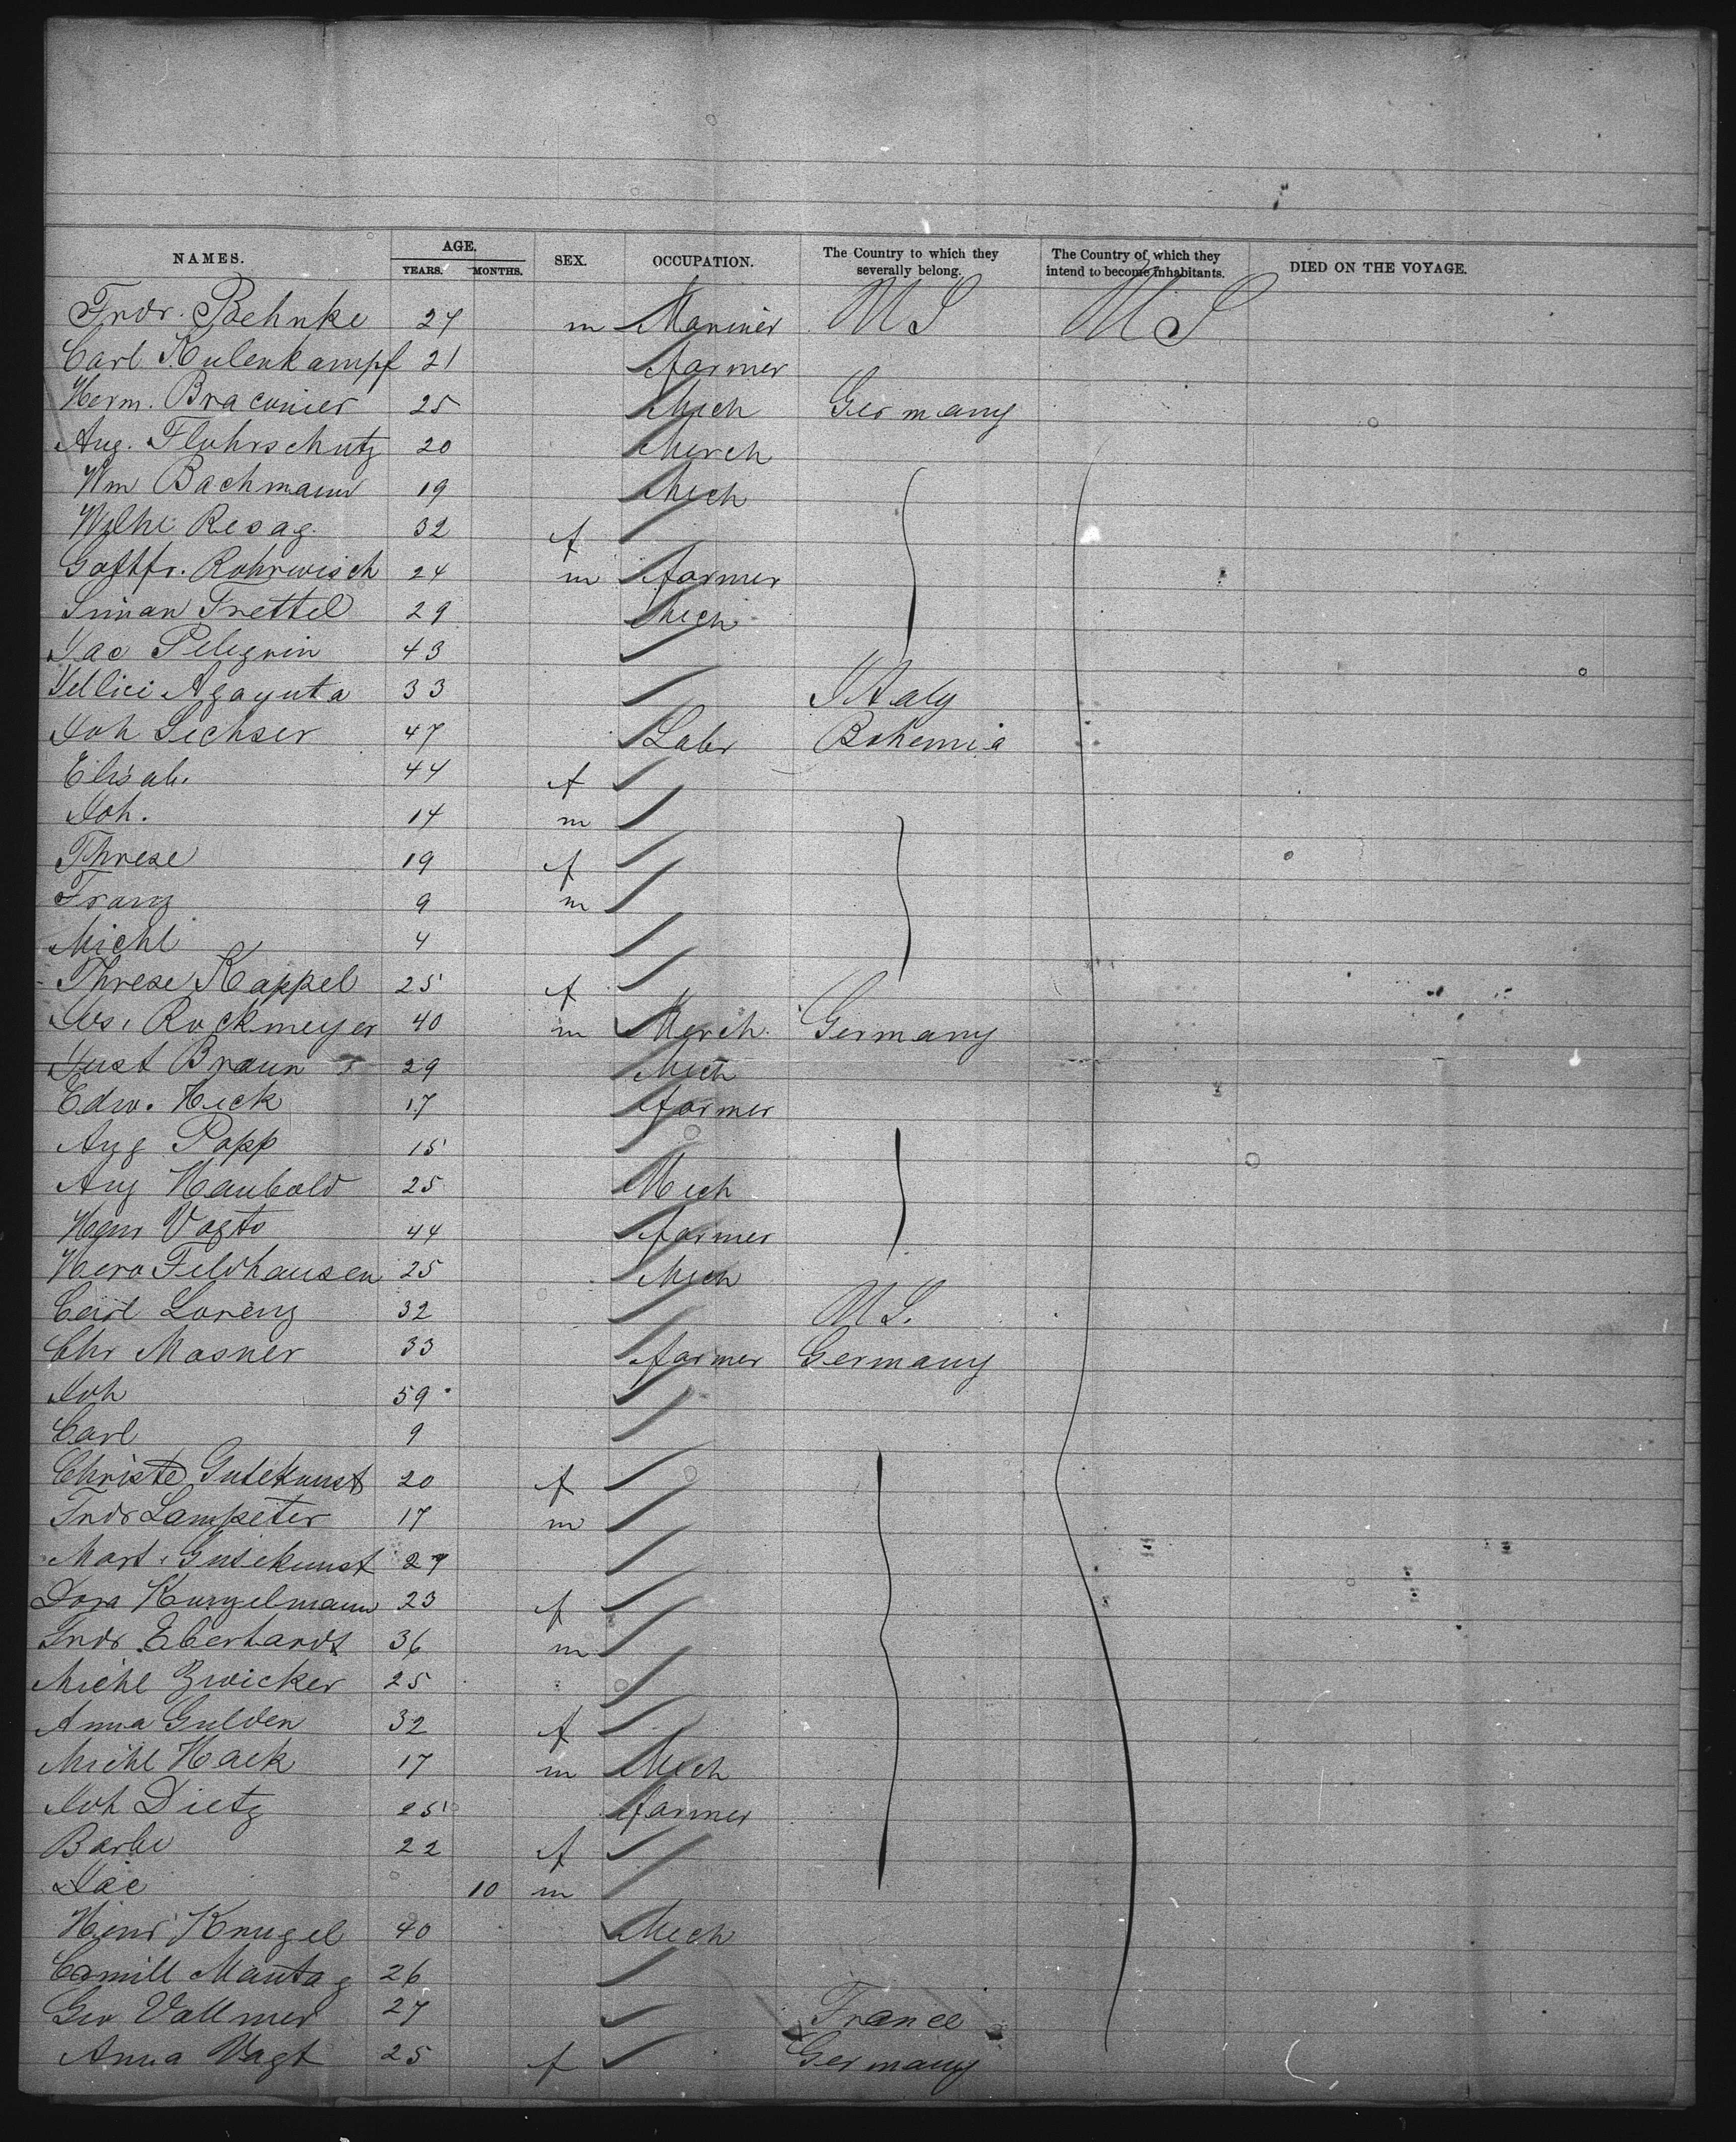 NAMES. AGE. SEX. OCCUPATION. The Country to which they severally belong. The Country of which they intend to become inhabitants. DIED ON THE VOYAGE.
YEARS. MONTHS.
Fridr. Behnke 27 m Mariner US US
Carl Kulenkampf 21 farmer
Herm. Braconier 25 Mech Germany
Aug. Flohrschutz 20 Merch
Wm Bachmann 19 Mech
Wilhe Resag. 32 f
Gottfr. Rohrwisch 24 m farmer
Siman Trettel 29 Mech
Jac Pelegrin 43
Agayuta 33 Italy
Joh Sechser 47 Labr Bohemia
Elisab. 44 f
Joh. 14 m
Threse 19 f
Franz 9 m
Michl 4
Threse Kappel 25 f
Rockmeyer 40 m Merch. Germany
Just Braun 29 Mech
Edw. Heck 17 farmer
Aug Popp 15
Aug Haubold 25 Mech
Henr Vogts 44 farmer
Feldhausen 25 Mech
Carl Lorenz 32 US.
Chr Mosner 33 farmer Germany
Joh 59
Carl 9
Christe Gutekunst 20 f
Fridr Lampeter 17 m
Mart. Gutekunst 27
Dora Kunzelmann 23 f
Fridr Eberhardt 36 m
Michl Zwicker 25
Anna Gulden 32 f
Michl Hack 17 m Mech
Joh Dietz 25 farmer
Barbe 22 f
Jac 10 m
Henr Krugel 40 Mech
Camill Mantag 26
Geo Vollmer 27 France
Anna Vagt 25 f Germany